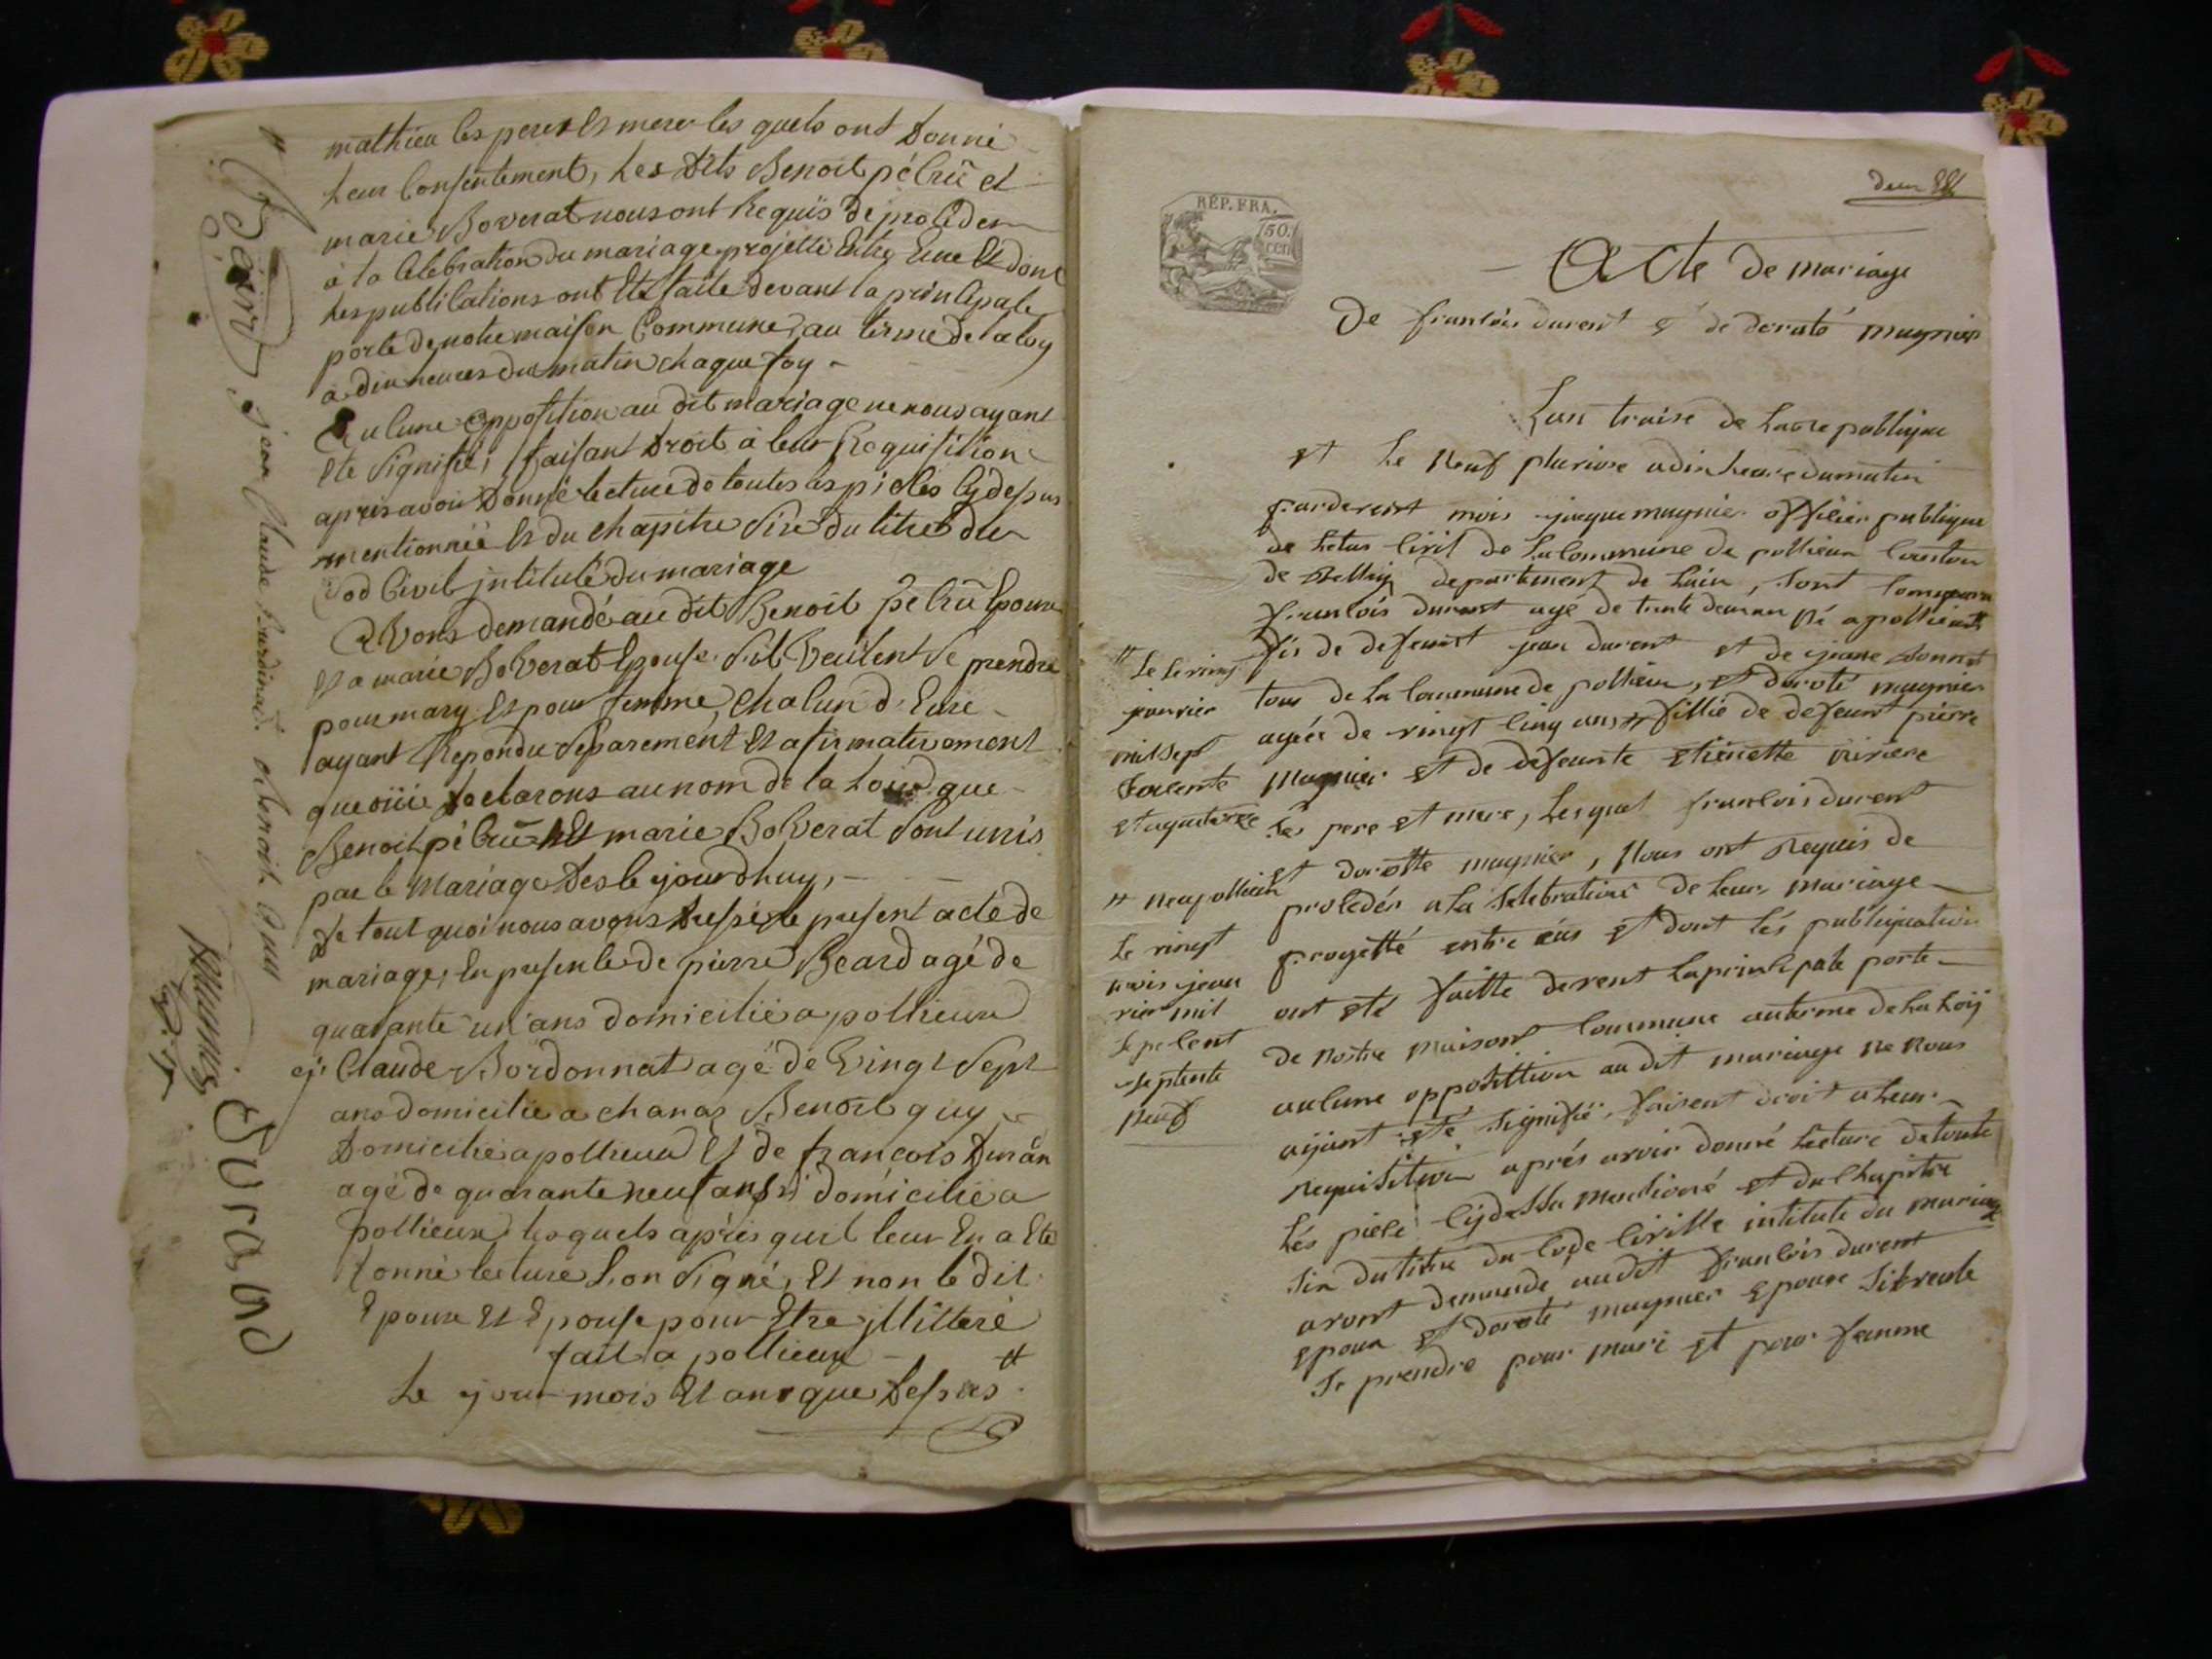 mathieu les peres Et mere les quels ont Donné
Leur Consentement, Les Dits Benoit pélrû et
marie Boverat nous ont Requis de proceder
à la Celebration du mariage projetté Entre Eux Et dont
Les publications ont Eté faite devant la principale
porte de notre maison Commune, au terme de la loy
a dix heures du matin chaque foy -
Aucune opposition au dit mariage ne nous ayant
Ete signifié, faisant Droit à leur Requisition
apres avoir Donné lecture de toutes les pieces Cy dessus
mentionnée Et du Chapitre Six du titre du
Cod Civil intitulé du mariage
Avons demandé au dit Benoit pélrû Epoux
Et a marie Bolverat Epouse sils veulent se prendre
pour mary Et pour femme, chacun d'Eux
ayant Repondu separement Et afirmativement
que oüi Declarons au nom de la Loix que
Benoit pélrû Et marie Bolverat sont unis
par le mariage Des le jourdhuy, -
De tout quoi nous avons Dressé le present acte de
mariage, En presence de pierre Beard agé de
quarante un ans domicilié a pollieux
et Claude Bordonnat agé de vingt sept
ans domicilié a chanaz Benoit guy
Domicilié a pollieux Et de francois Duran
agé de quarante neuf ans domicilié a
pollieux lesquels après quil leur En a Eté
Donné lecture L'on signé, Et non le dit
Epoux Et Epouse pour Etre illitteré
fait a pollieux -
Le jour mois Et ans que Dessus
jean Claude Bardinat benoit gui
Beard
Durand
REP. FRA.
50.
cen
deux
Acte de mariage
De franlois durent et de doraté magnier
Lan traise de Lare publique
et Le Neuf pluviose a dix heure du matin
pardevent mois jaque magnier offilier publique
de Letas livil de La Commune de pollieux Canton
de Belley departement de Lain, sont Comparu
franlois durent agé de trente deux an Né a pollieux
fis de defeunt jean durent et de jeane donnet
tous de La Commune de pollieux, et doroté magnier
agée de vingt linq ans fillie de defeunt pierre
Magnier et de defeunte etienette riviere
Les pere et mere, Lesquel franlois durent
et dorotte magnier, Nous ont Requis de
proleder a La Selebrations de Leur mariage
progetté entre eus et dont Lés publiquation
ont eté faitte devent La prinlipale porte
de Nostre maisont Commune auterme de La Loÿ
aulune opposittion au dit mariage ne Nous
aÿant eté signifié, faisent droit a Leur
Requisition aprés avoir donné Lecture de toute
Lés piele Cÿ dessu mentioné et du Chapitre
Six du titre du Code Civille intitule du mariage
avont demande au dit franlois durent
epoux et doroté magnier epouse Sil veule
Se prendre pour mari et pour famme
# Le
janvier
mil sept
# Ne a pollieux
Le vingt
trois jean
vier mil
Sepelent
septente
neuf